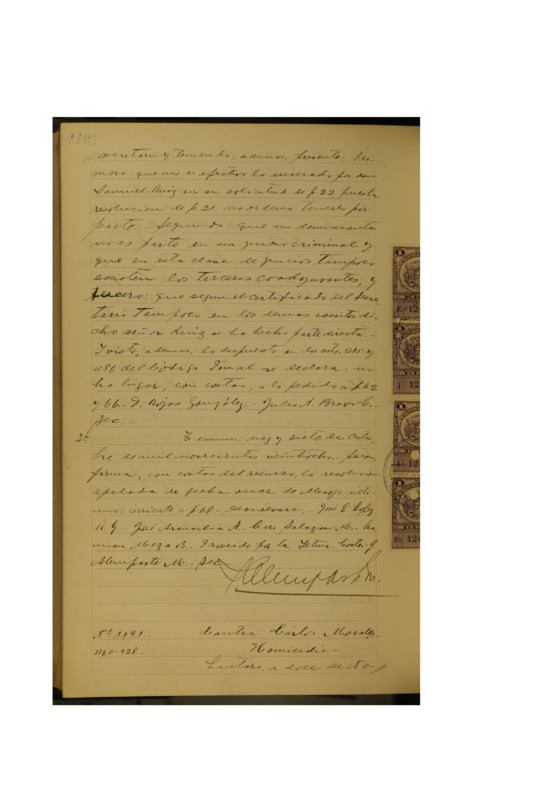 secretario y teniendo, ademas, presente: Pri-
mero que no es efectivo lo aseverado por don
Samuel Ruiz en su solicitud de f 22 pues la
resolucion de f 20 no ordenó tenerlo por
parte.- Segundo: que un denunciante
no es parte en un juicio criminal y
que en esta clase de juicios tampoco
existen los terceros coadyuvantes, y
tercero: que segun el certificado del Secre-
tario tampoco en los demas escritos di-
cho señor Ruiz se ha hecho parte directa.-
Visto, ademas, lo dispuesto en los arts.
del Código Penal se declara: no
ha lugar, con costas, a lo pedido a f 62
y 66.- D. Rojas González.- Julio A. Bravo C.-
Sec.-
2ª Temuco, diez y siete de Octu-
bre de mil novecientos veintiocho.- Se con-
firma, con costas del recurso, la resolucion
apelada de fecha once de Mayo ulti-
mo, corriente a f 68.- Devuélvase. José E. López
R. G.- José Arancibia A.- Ciro Salazar M.- Ra-
mon Meza B.- Proveido por la Iltma. Corte.- J
Alemparte M.- Sec
Alemparte M.
Nº 1191.- Contra Carlos Morales.-
Homicidio.-
Lautaro, a doce de No-